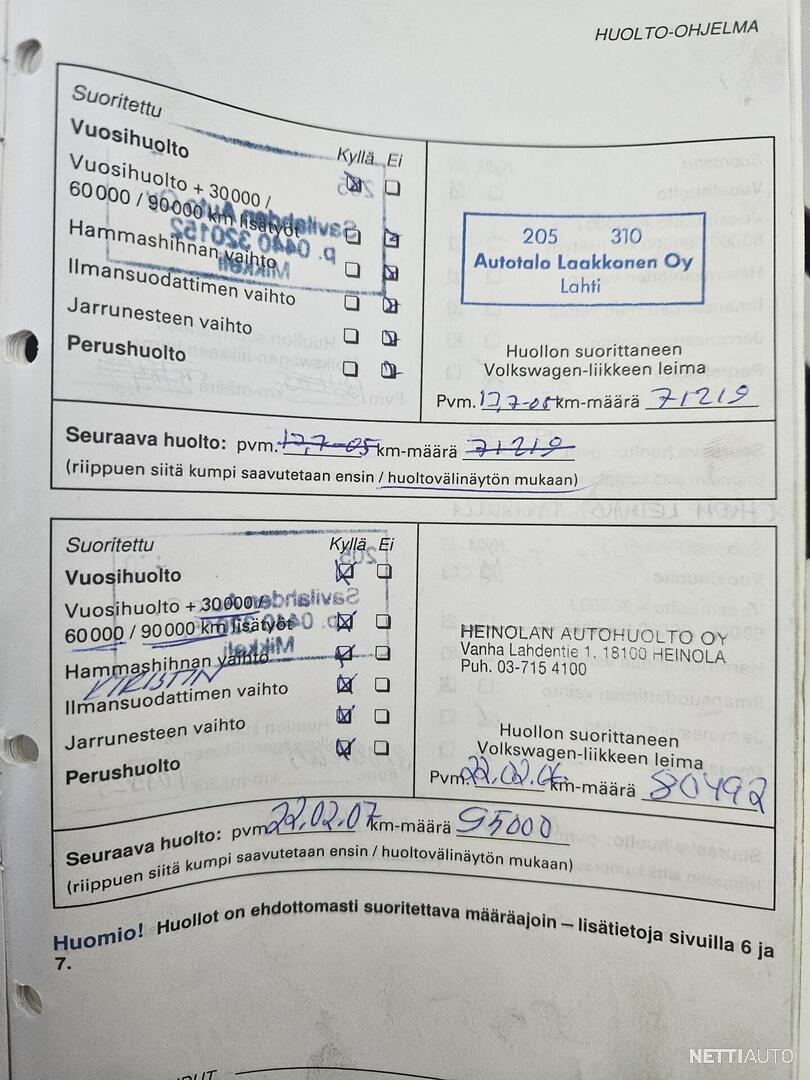 HUOLTO-OHJELMA
Suoritettu
Kyllä Ei
Vuosihuolto
Vuosihuolto + 30 000 /
60 000 / 90 000 km lisätyöt
Hammashihnan vaihto
Ilmansuodattimen vaihto
Jarrunesteen vaihto
Perushuolto
205 310
Autotalo Laakkonen Oy
Lahti
Huollon suorittaneen
Volkswagen-liikkeen leima
Pvm. 17,7-05 km-määrä 71219
Seuraava huolto: pvm. 17,7-05 km-määrä 71219
(riippuen siitä kumpi saavutetaan ensin / huoltovälinäytön mukaan)
Suoritettu Kyllä Ei
Vuosihuolto
Vuosihuolto + 30 000 /
60 000 / 90 000 km lisätyöt
Hammashihnan vaihto
KIRISTIN
Ilmansuodattimen vaihto
Jarrunesteen vaihto
Perushuolto
HEINOLAN AUTOHUOLTO OY
Vanha Lahdentie 1, 18100 HEINOLA
Puh. 03-715 4100
Huollon suorittaneen
Volkswagen-liikkeen leima
Pvm. 22.02.06. km-määrä 80492
Seuraava huolto: pvm. 22.02.07 km-määrä 95000
(riippuen siitä kumpi saavutetaan ensin / huoltovälinäytön mukaan)
Huomio! Huollot on ehdottomasti suoritettava määräajoin – lisätietoja sivuilla 6 ja
7.
NETTIAUTO